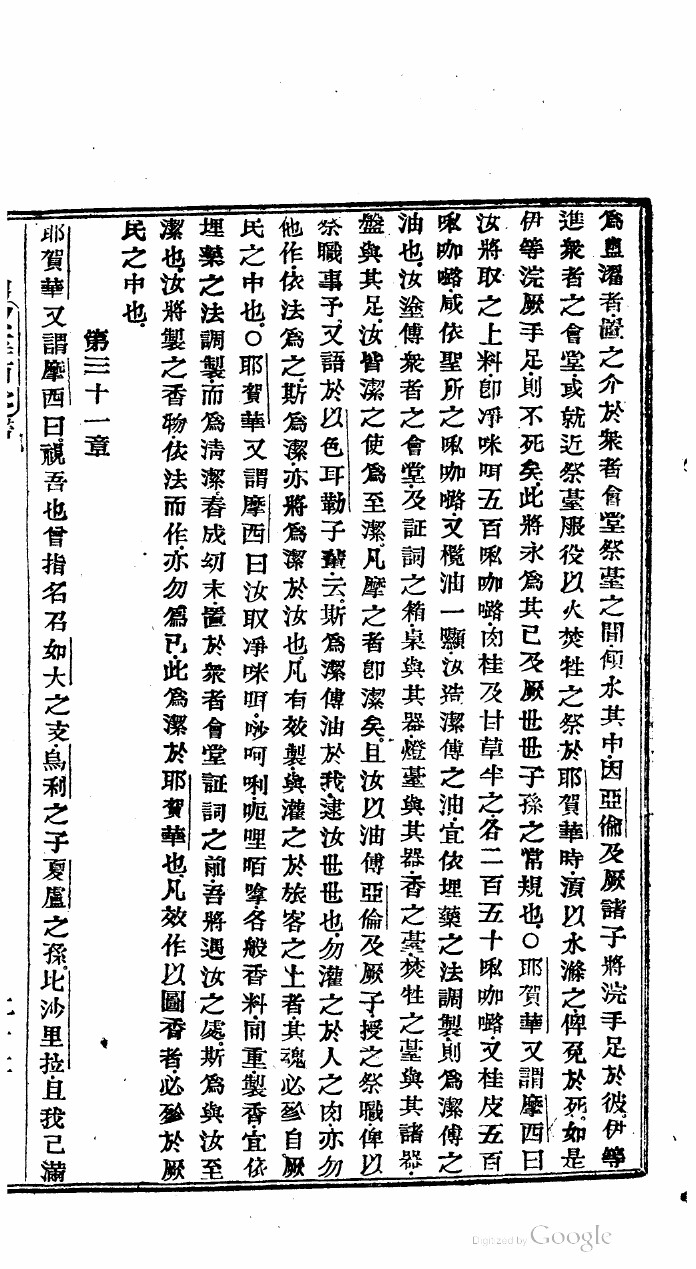 爲盥濯者置之介於衆者會堂祭臺之間傾水其中因亞倫及厥諸子將浣手足於彼伊等
進衆者之會堂或就近祭臺服役以火焚牲之祭於耶賀華時湏以水滌之俾免於死如是
伊等浣厥手足則不死矣此將永爲其已及厥世世子孫之常規也○耶賀華又謂摩西曰
汝將取之上料卽凈咪咡五百啾咖嚕肉桂及甘草半之各二百五十啾咖嚕又桂皮五百
啾咖嚕咸依聖所之啾咖嚕又欖油一顯汝造潔傅之油宜依埋藥之法調製則爲潔傅之
油也汝塗傅衆者之會堂及証詞之箱桌與其器燈臺與其器香之臺焚牲之臺與其諸器
盤與其足汝皆潔之使爲至潔凡摩之者卽潔矣且汝以油傅亞倫及厥子授之祭職俾以
祭職事予又語於以色耳勒子輩云斯爲潔傅油於我逮汝世世也勿灌之於人之肉亦勿
他作依法爲之斯爲潔亦將爲潔於汝也凡有效製與灌之於旅客之上者其魂必㕘自厥
民之中也○耶賀華又謂摩西曰汝取凈咪咡唦呵唎呃哩晒拿各般香料同重製香宜依
埋藥之法調製而爲清潔舂成幼末置於衆者會堂証詞之前吾將遇汝之處斯爲與汝至
潔也汝將製之香物依法而作亦勿爲己此爲潔於耶賀華也凡效作以圖香者必㕘於厥
民之中也
第三十一章
耶賀華又謂摩西曰視吾也曾指名召如大之支烏利之子夏盧之孫比沙里拉且我已滿
Digitized by Google